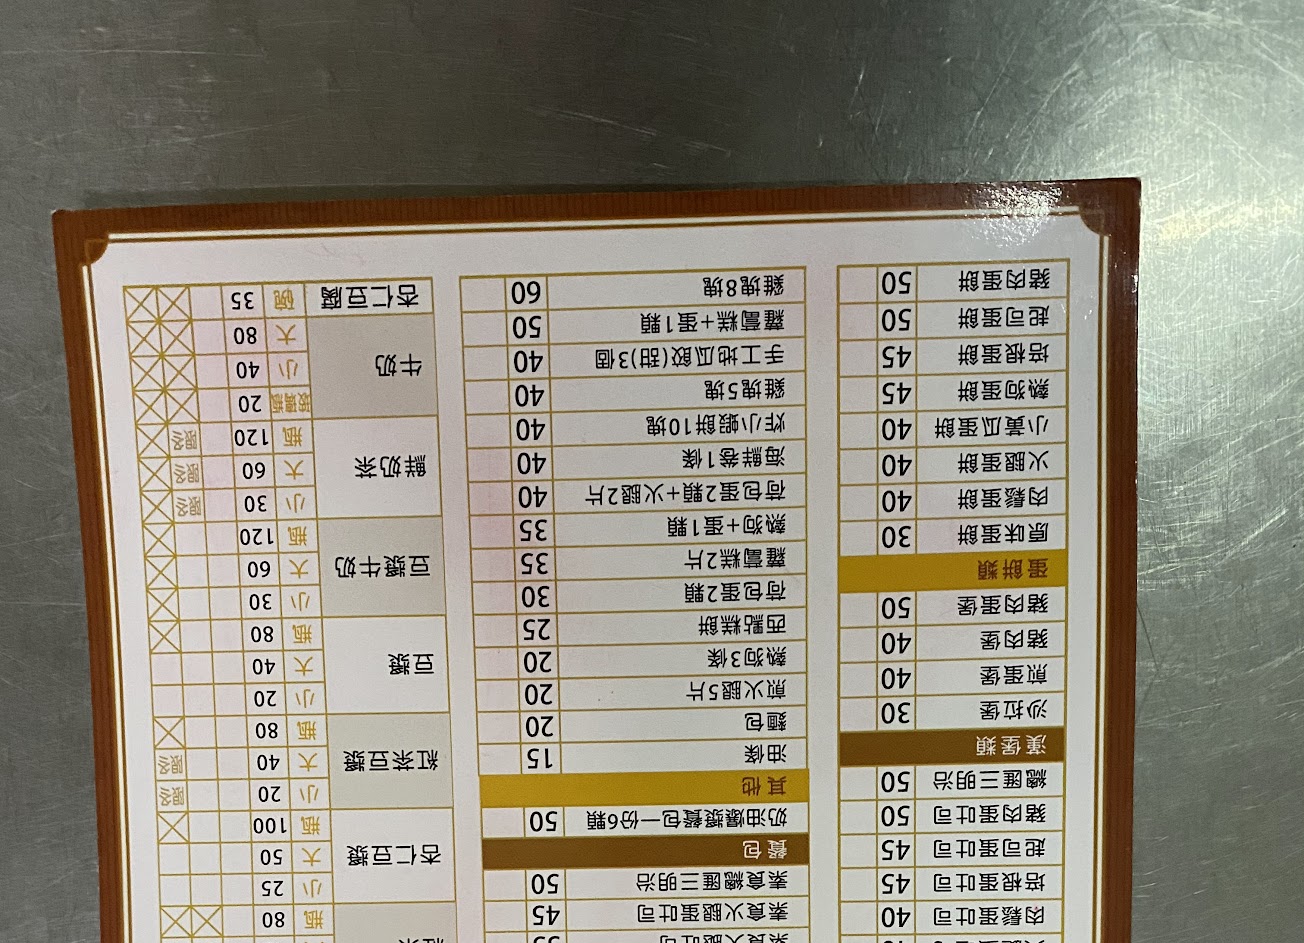 肉鬆蛋吐司 40
培根蛋吐司 45
起司蛋吐司 45
豬肉蛋吐司 50
總匯三明治 50
漢堡類
沙拉堡 30
煎蛋堡 40
豬肉堡 40
豬肉蛋堡 50
蛋餅類
原味蛋餅 30
肉鬆蛋餅 40
火腿蛋餅 40
小黃瓜蛋餅 40
熱狗蛋餅 45
培根蛋餅 45
起司蛋餅 50
豬肉蛋餅 50
素食火腿吐司 35
素食火腿蛋吐司 45
素食總匯三明治 50
餐包
奶油爆漿餐包一份6顆 50
其他
油條 15
麵包 20
煎火腿5片 20
熱狗3條 20
西點糕餅 25
荷包蛋2顆 30
蘿蔔糕2片 35
熱狗+蛋1顆 35
荷包蛋2顆+火腿2片 40
海鮮卷1條 40
炸小蝦餅10塊 40
雞塊5塊 40
手工地瓜餃(甜)3個 40
蘿蔔糕+蛋1顆 50
雞塊8塊 60
瓶 80
杏仁豆漿
小 25
大 50
瓶 100
紅茶豆漿
小 20
大 40
瓶 80
豆漿
小 20
大 40
瓶 80
豆漿牛奶
小 30
大 60
瓶 120
鮮奶茶
小 30
大 60
瓶 120
牛奶
玻璃瓶 20
小 40
大 80
杏仁豆腐 碗 35